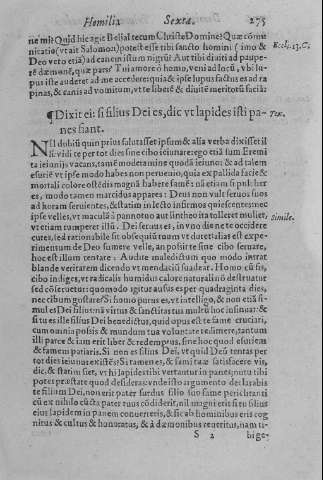 Homilia Sexta. 275
ne mi? Quid hic agit Belial tecum Christe Domine? Quæ cõmu
nicatio (vt ait Salomon) potest esse tibi sancto homini (imo &
Deo vero etiã) ad canem istum nigrũ? Aut tibi diuiti ad paupe-
rẽ dæmonẽ, quæ pars? Tu i amore ô homo, veni ad locũ, vbi lu-
pus iste audet ad te accedere: quia & ipse lupus factus es ad ra
pinas, & canis ad vomitum, vt te liberẽ & ditem meritorũ facia
Eccli. 13. C.
¶ Dixit ei: si filius Dei es, dic vt lapides isti pa-
nes fiant.
Tex.
Nil dubiũ quin prius salutasset ipsum & alia verba dixisset il
li: vidi te per tot dies sine cibo ieiunare: ego etiã sum Eremi
ta ieiunijs vacans, tamẽ moderamine quodã ieiuno: & ad talem
esuriẽ vt ipse modo habes non perueni, quia ex pallida facie &
mortali colore ostẽdis magnã habere famẽ: nã etiam si pulcher
es, modo tamen marcidus appares: Deus non vult seruos suos
ad horam ferulentes, & statim in lecto infirmos quiescentes: nec
ipse velles, vt maculã à pannotuo aut lintheo ita tolleret mulier,
vt etiam rumperet illũ. Dei seruus es, in vno die ne te occidere
cures, sed rationabile sit obsequiũ tuum
perimentum de Deo sumere velle, an possit te sine cibo seruare,
hoc est illum tentare. Audite maledictum quo modo intrat
blande veritatem dicendo vt mendaciũ suadeat. Homo cũ sis,
cibo indiges, vt radicalis humidus calore naturali nõ destruatur
sed cõseruetur: quomodo igitur ausus es per quadraginta dies,
nec cibum gustare? Si homo purus es, vt intelligo, & non etiã si-
mul es Dei filius: nã virtus & sanctitas tua multũ hoc insinuat: &
si tu es ille filius Dei benedictus, quid opus est te fame cruciari,
cum omnia possis & mundum tua voluntate redimere, tantum
illi parce & iam erit liber & redemptus, sine hoc quod esuriem
& famem patiaris. Si non es filius Dei, vt quid Deũ tentas per
tot dies ieiunus existẽs? Si tamen es, & fami tuæ satisfacere vis,
dic, & statim fiet, vt hi lapides tibi vertantur in panes: nutu tibi
potes præstare quod desideras: vnde isto argumento declarabis
te filium Dei, non erit pater surdus filio suo fame perichtanti
cũ ex nihilo cũcta pater tuus cõdiderit, nil magni erit si tu filius
eius lapidem in panem conuerteris, & sic ab hominibus eris cog
nitus & cultus & honoratus, & à dæmonibus reueritus, nam ti-
Simile.
S 2 bi ge-